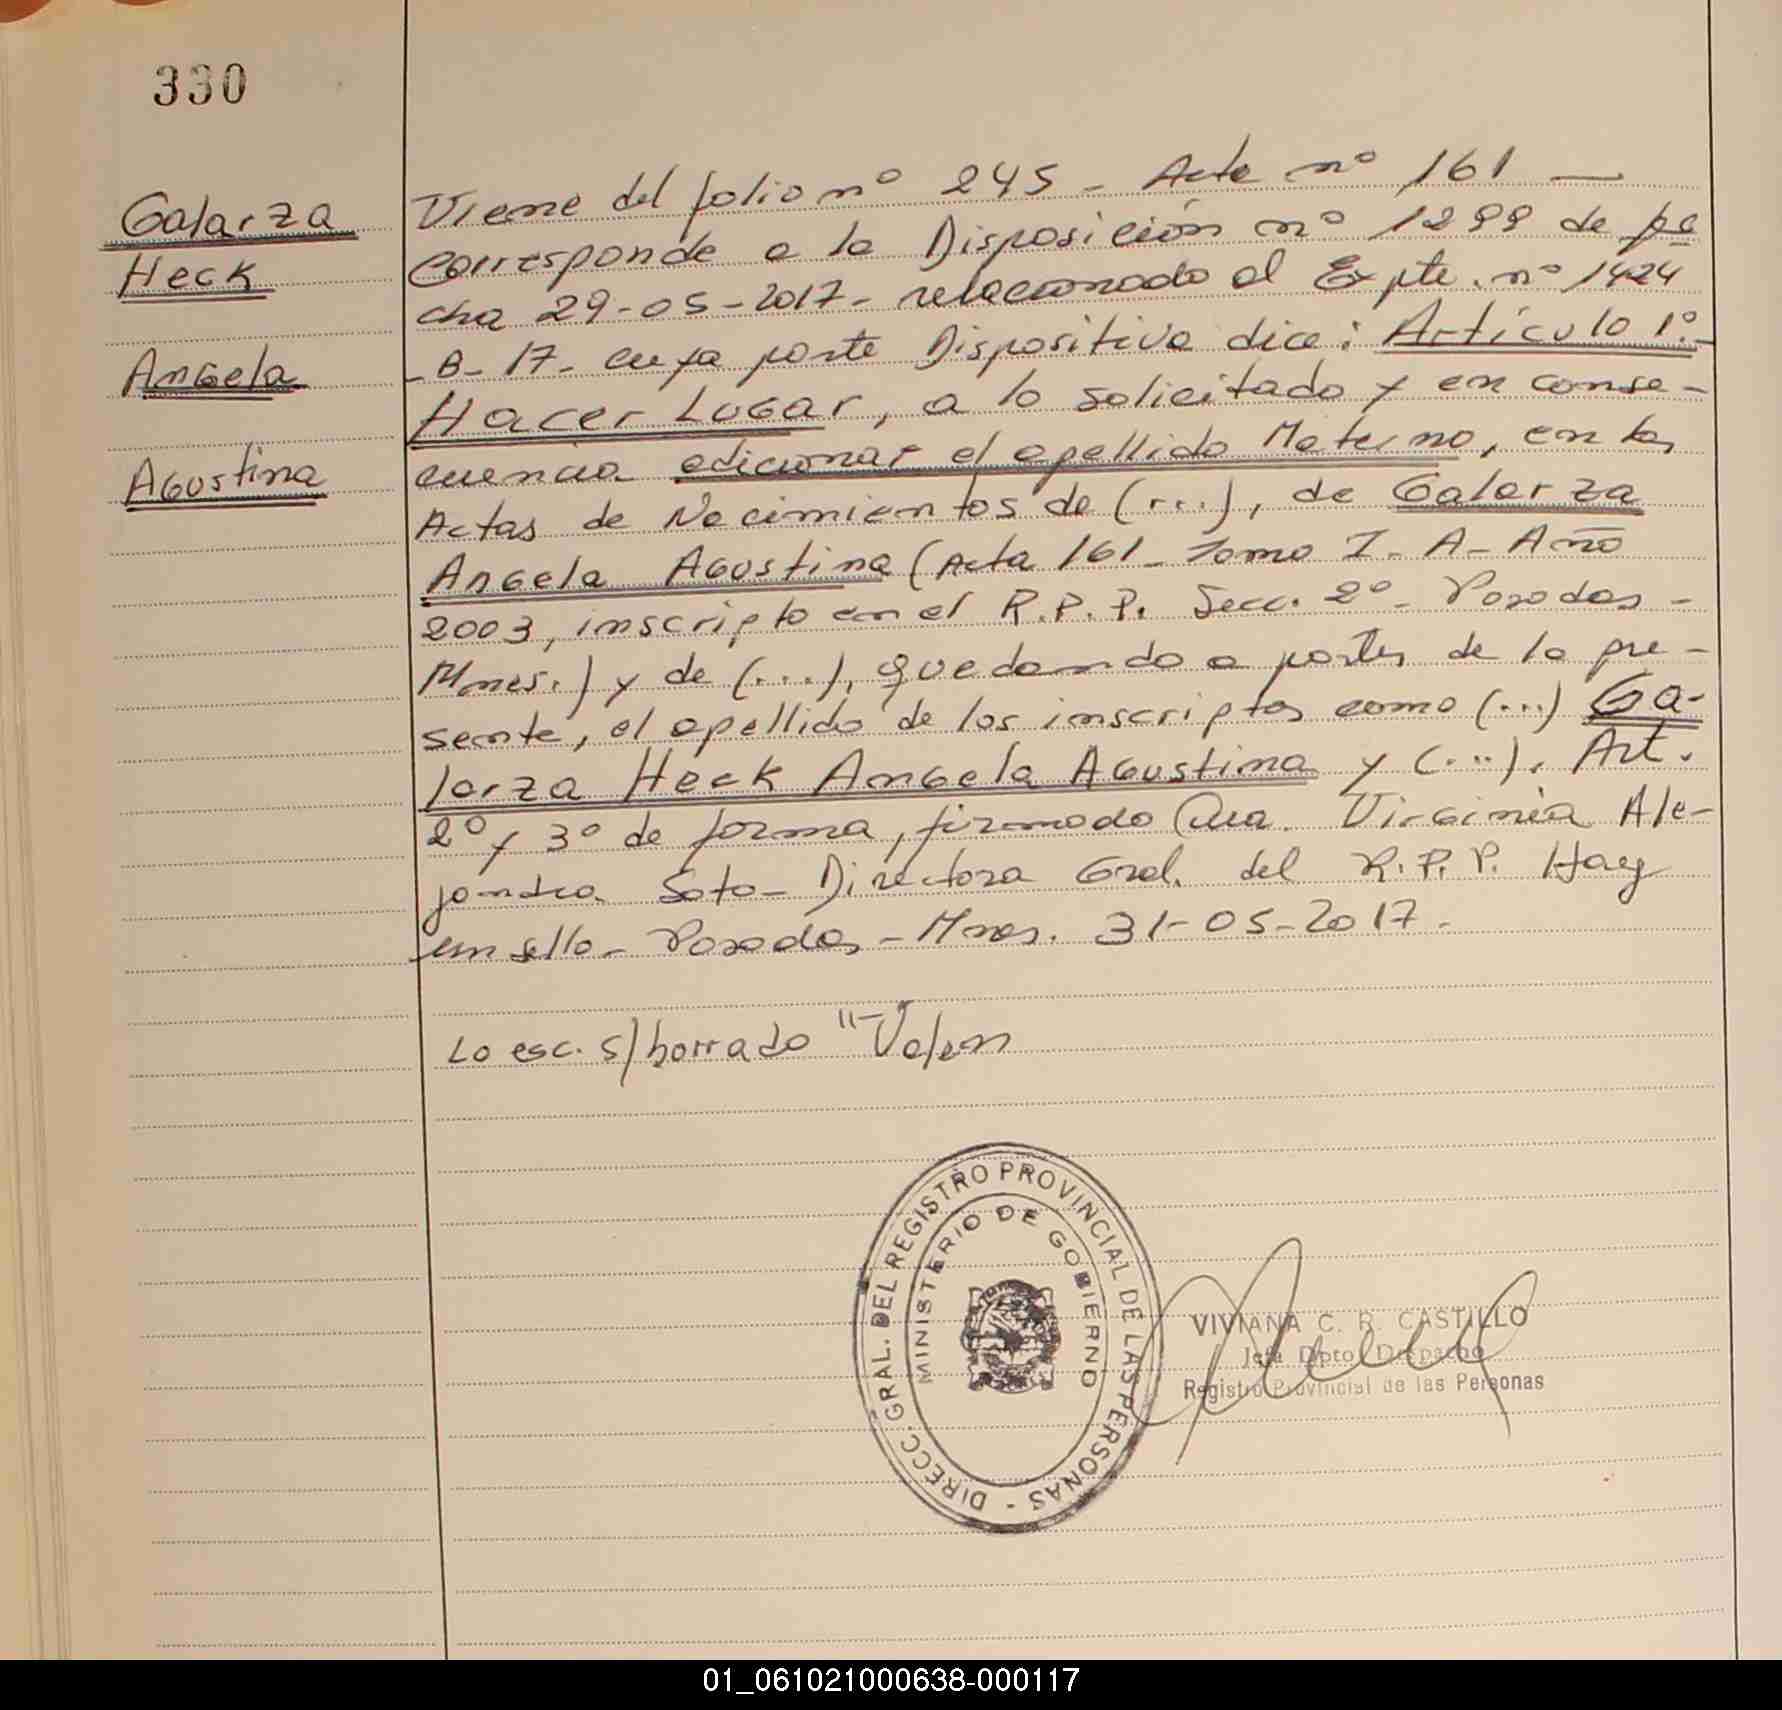 330
Galarza
Heck
Angela
Agustina
Viene del folio nº 245 - Acta nº 161 —
corresponde a la Disposición nº 1299 de fe
cha 29-05-2017- relacionado al Expte. nº 1424
-B-17- cuya parte Dispositiva dice: Artículo 1º.-
Hacer Lugar, a lo solicitado y en conse-
cuencia adicionar el apellido Materno, en las
Actas de Nacimientos de (...), de Galarza
Angela Agustina (Acta 161 - Tomo I - A - Año
2003, inscripto en el R.P.P. Secc. 2º - Posadas -
Mnes.) y de (...), quedando a partir de la pre-
sente, el apellido de los inscriptos como (...) Ga-
larza Heck Angela Agustina y (...). Art.
2º y 3º de forma, firmado Dra. Virginia Ale-
jandra Soto - Directora Gral. del R.P.P. Hay
un sello - Posadas - Mnes. 31-05-2017.
Lo esc. s/borrado "Valen
DIRECC. GRAL. DEL REGISTRO PROVINCIAL DE LAS PERSONAS -
MINISTERIO DE GOBIERNO
VIVIANA C. R. CASTILLO
Jefa Dpto Despacho
Registro Provincial de las Personas
01_061021000638-000117